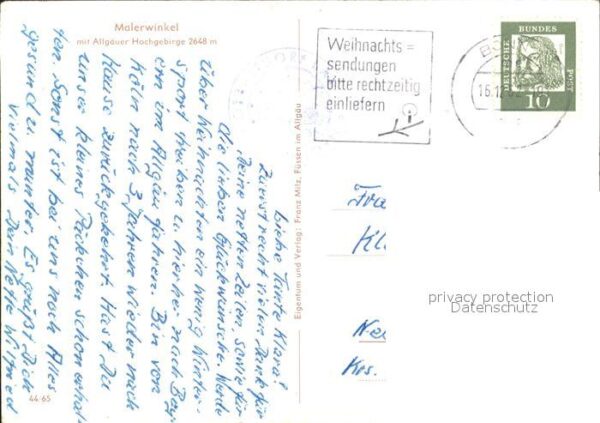 Malerwinkel
mit Allgäuer Hochgebirge 2648 m
Liebe Tante Klara!
Zuerst recht vielen Dank für
Deine netten Zeilen, sowie für
die lieben Glückwünsche. Werde
über Weihnachten ein wenig Winter-
sport treiben u. hierher nach Bay-
ern im Allgäu fahren. Bin von
Köln nach 3 Jahren wieder nach
Hause zurückgekehrt. Hast Du
unser kleines Päckchen schon erhal-
ten. Sonst ist bei uns noch Alles
gesund u. munter. Es grüßt Dich
Vielmals Dein Neffe Wilfried
44 65
Eigentum und Verlag: Franz Milz, Füssen im Allgäu
Weihnachts=
sendungen
bitte rechtzeitig
einliefern
16.12
DEUTSCHE BUNDES POST
10
Kl
Krs.
privacy protection
Datenschutz